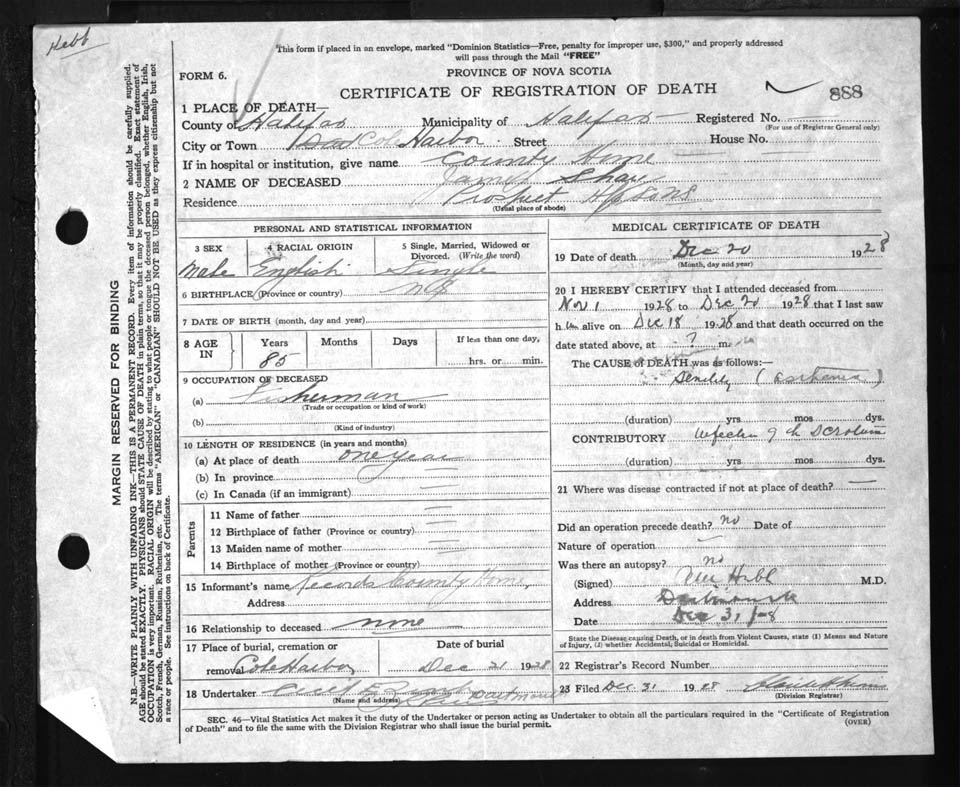 Hebb
This form if placed in an envelope, marked "Dominion Statistics—Free, penalty for improper use, $300," and properly addressed
will pass through the Mail "FREE"
FORM 6.
PROVINCE OF NOVA SCOTIA
CERTIFICATE OF REGISTRATION OF DEATH
888
1 PLACE OF DEATH—
County of Halifax Municipality of Halifax Registered No.
(For use of Registrar General only)
City or Town Cole Harbor Street House No.
If in hospital or institution, give name County Home
2 NAME OF DECEASED James Shaw
Residence Prospect Hfx Co NS
(Usual place of abode)
MARGIN RESERVED FOR BINDING
N.B.—WRITE PLAINLY WITH UNFADING INK—THIS IS A PERMANENT RECORD. Every item of information should be carefully supplied.
AGE should be stated EXACTLY. PHYSICIANS should STATE CAUSE OF DEATH in plain terms, so that it may be properly classified. Exact statement of
OCCUPATION is very important. RACIAL ORIGIN will be described by stating to what people or tongue the deceased person belonged, whether English, Irish,
Scotch, French, German, Russian, Ruthenian, etc. The terms "AMERICAN" or "CANADIAN" SHOULD NOT BE USED as they express citizenship but not
a race or people. See instructions on back of Certificate.
PERSONAL AND STATISTICAL INFORMATION
3 SEX 4 RACIAL ORIGIN 5 Single, Married, Widowed or
Divorced. (Write the word)
Male English Single
6 BIRTHPLACE (Province or country) NS
7 DATE OF BIRTH (month, day and year)
8 AGE IN Years Months Days If less than one day,
85 hrs. or min.
9 OCCUPATION OF DECEASED
(a) Fisherman
(Trade or occupation or kind of work)
(b)
(Kind of industry)
10 LENGTH OF RESIDENCE (in years and months)
(a) At place of death one year
(b) In province
(c) In Canada (if an immigrant)
Parents
11 Name of father
12 Birthplace of father (Province or country)
13 Maiden name of mother
14 Birthplace of mother (Province or country)
15 Informant's name Records County Home
Address
16 Relationship to deceased none
17 Place of burial, cremation or Date of burial
removal Cole Harbor Dec 21 1928
18 Undertaker Dartmouth
(Name and address)
MEDICAL CERTIFICATE OF DEATH
19 Date of death Dec 20 1928
(Month, day and year)
20 I HEREBY CERTIFY that I attended deceased from
Nov 1 1928 to Dec 20 1928 that I last saw
h im alive on Dec 18 1928 and that death occurred on the
date stated above, at ? m
The CAUSE OF DEATH was as follows:—
Senility (asthenia)
(duration) yrs mos dys.
CONTRIBUTORY Infection of the Scrotum
(duration) yrs mos dys.
21 Where was disease contracted if not at place of death? —
Did an operation precede death? no Date of
Nature of operation
Was there an autopsy? no
(Signed) Hebb M.D.
Address Dartmouth
Date Dec 31, 28
State the Disease causing Death, or in death from Violent Causes, state (1) Means and Nature
of Injury, (2) whether Accidental, Suicidal or Homicidal.
22 Registrar's Record Number
23 Filed Dec 31 1928
(Division Registrar)
SEC. 46—Vital Statistics Act makes it the duty of the Undertaker or person acting as Undertaker to obtain all the particulars required in the "Certificate of Registration
of Death" and to file the same with the Division Registrar who shall issue the burial permit. (OVER)